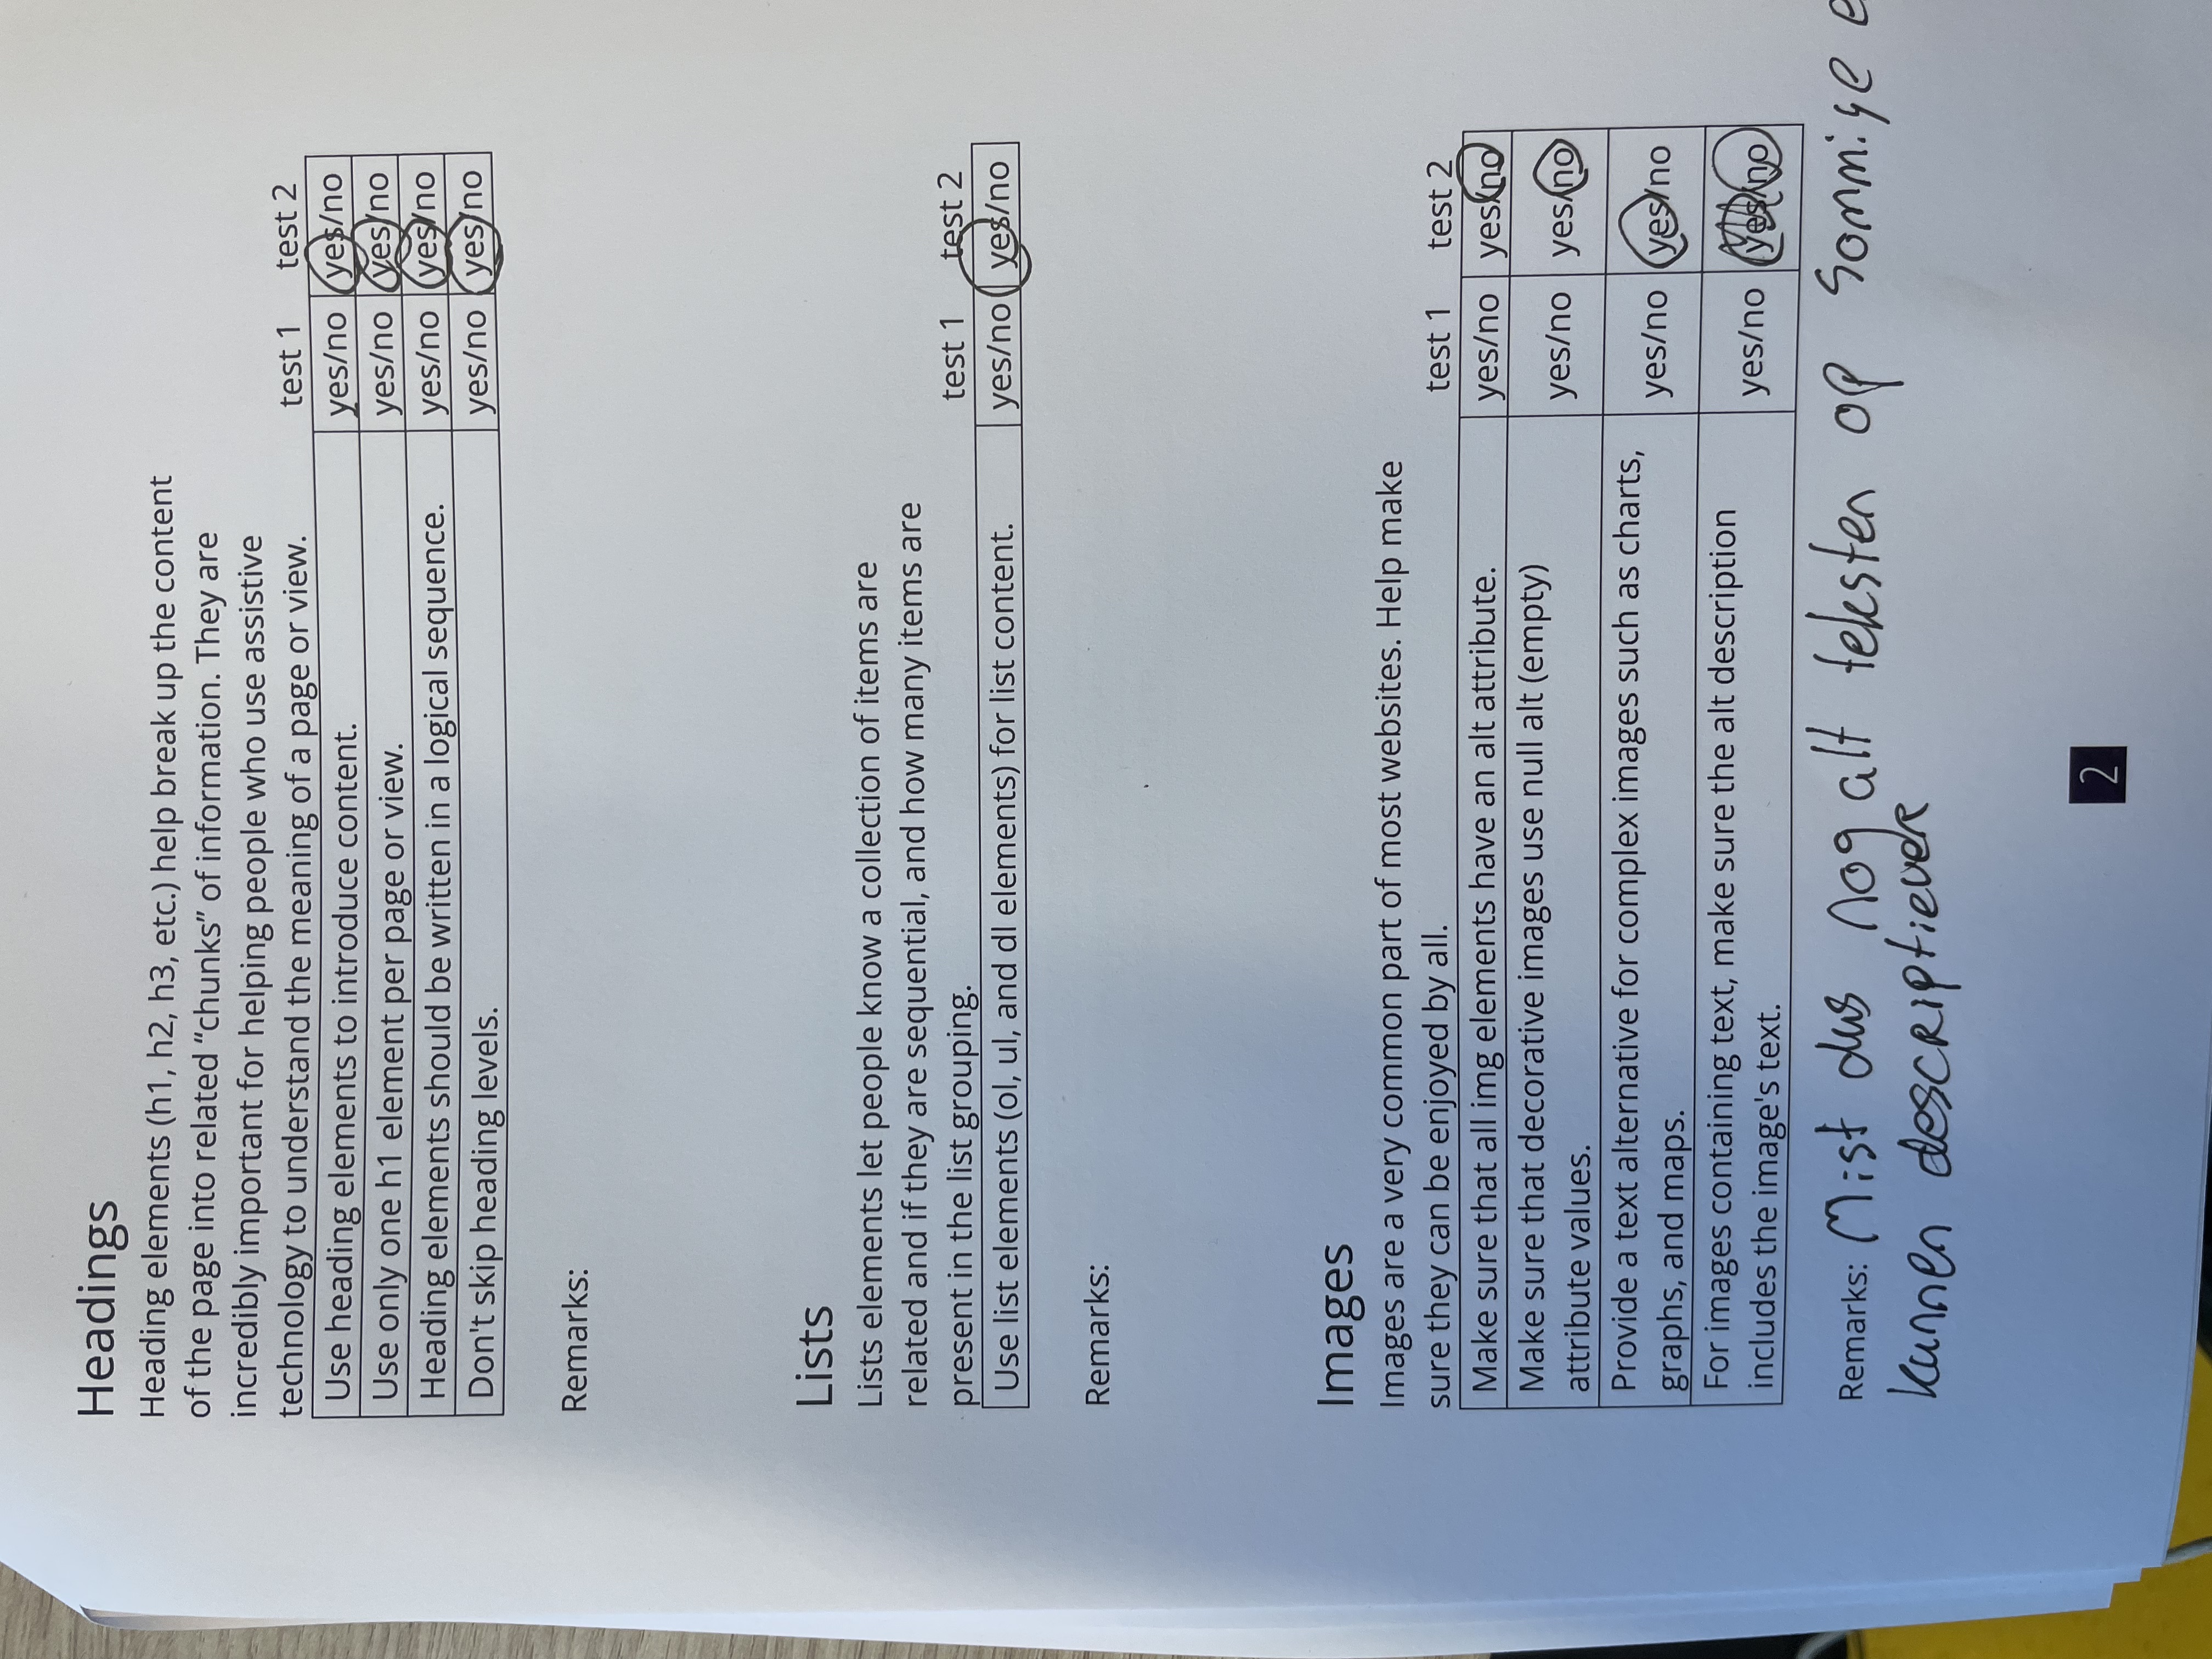 Headings
Heading elements (h1, h2, h3, etc.) help break up the content
of the page into related “chunks” of information. They are
incredibly important for helping people who use assistive
technology to understand the meaning of a page or view. test 1 test 2
Use heading elements to introduce content. yes/no yes/no
Use only one h1 element per page or view. yes/no yes/no
Heading elements should be written in a logical sequence. yes/no yes/no
Don't skip heading levels. yes/no yes/no
Remarks:
Lists
Lists elements let people know a collection of items are
related and if they are sequential, and how many items are
present in the list grouping. test 1 test 2
Use list elements (ol, ul, and dl elements) for list content. yes/no yes/no
Remarks:
Images
Images are a very common part of most websites. Help make
sure they can be enjoyed by all. test 1 test 2
Make sure that all img elements have an alt attribute. yes/no yes/no
Make sure that decorative images use null alt (empty)
attribute values. yes/no yes/no
Provide a text alternative for complex images such as charts,
graphs, and maps. yes/no yes/no
For images containing text, make sure the alt description
includes the image's text. yes/no yes/no
Remarks: Mist dus nog alt teksten op sommige
kunnen descriptiever
2